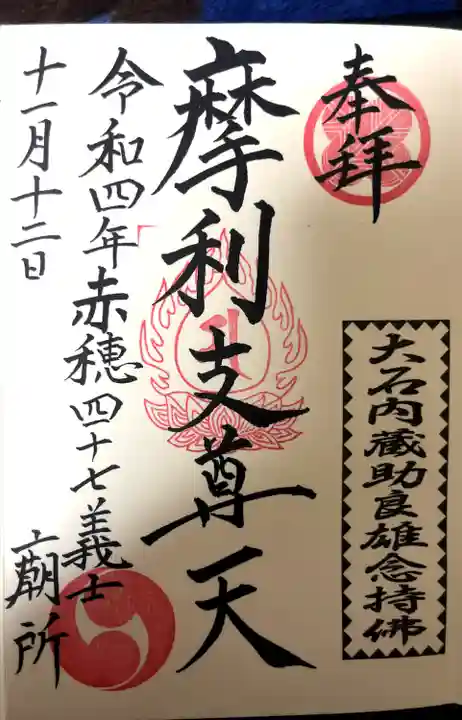 奉拝
大石内蔵助良雄念持佛
摩利支尊天
令和四年赤穂四十七義士
廟所
十一月十二日